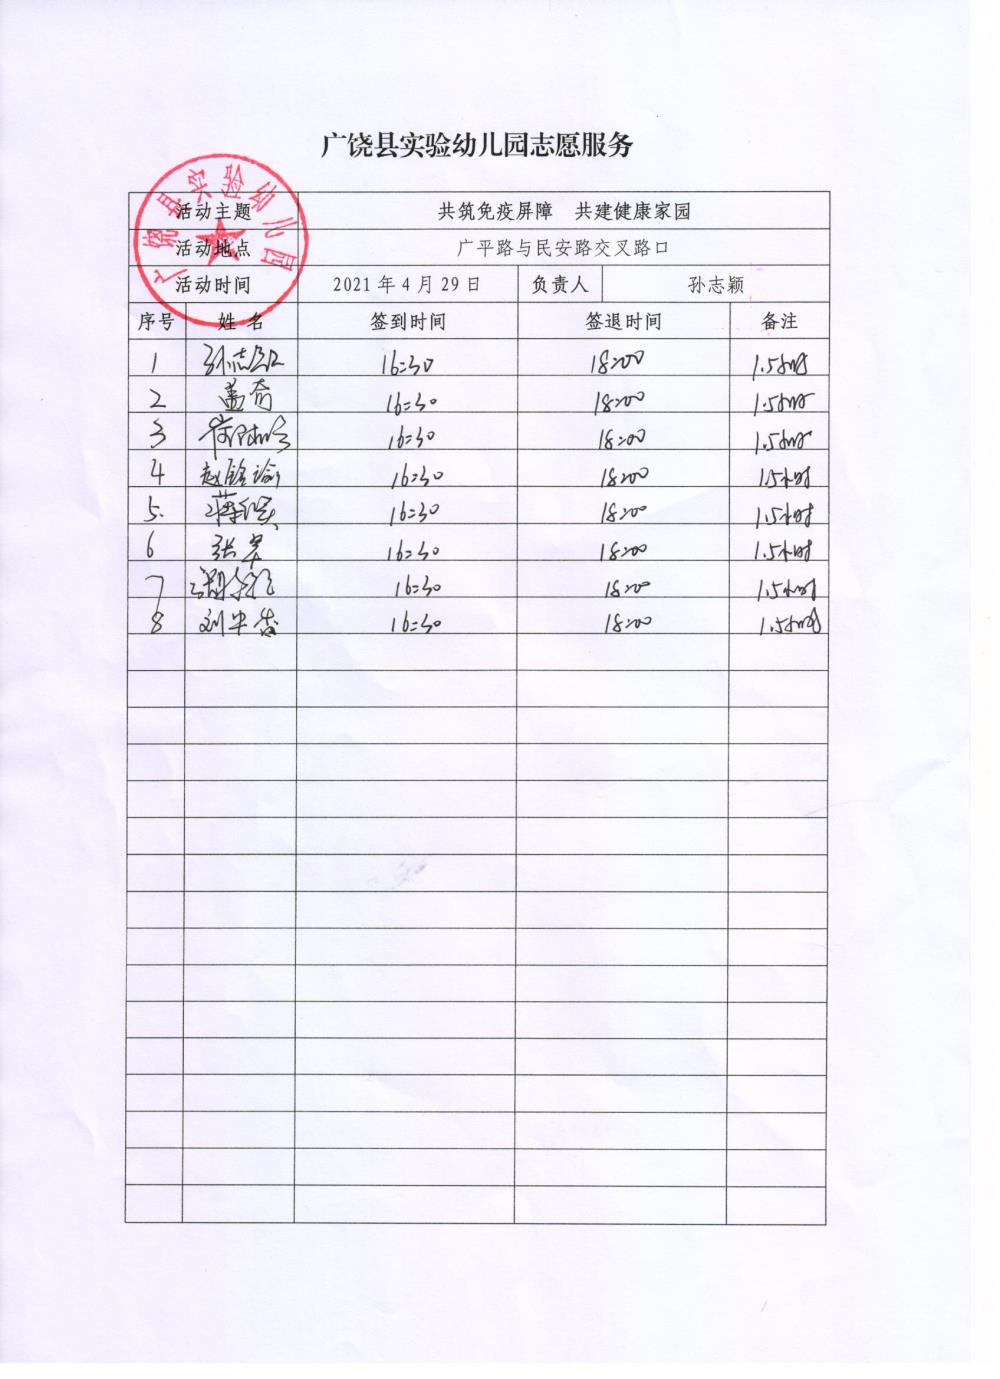 广饶县实验幼儿园志愿服务
广饶县实验幼儿园
活动主题 共筑免疫屏障 共建健康家园
活动地点 广平路与民安路交叉路口
活动时间 2021年4月29日 负责人 孙志颖
序号 姓名 签到时间 签退时间 备注
1 16:30 18:00 1.5小时
2 16:30 18:00 1.5小时
3 16:30 18:00 1.5小时
4 赵铭谕 16:30 18:00 1.5小时
5. 16:30 18:00 1.5小时
6 16:30 18:00 1.5小时
7 16:30 18:00 1.5小时
8 16:30 18:00 1.5小时